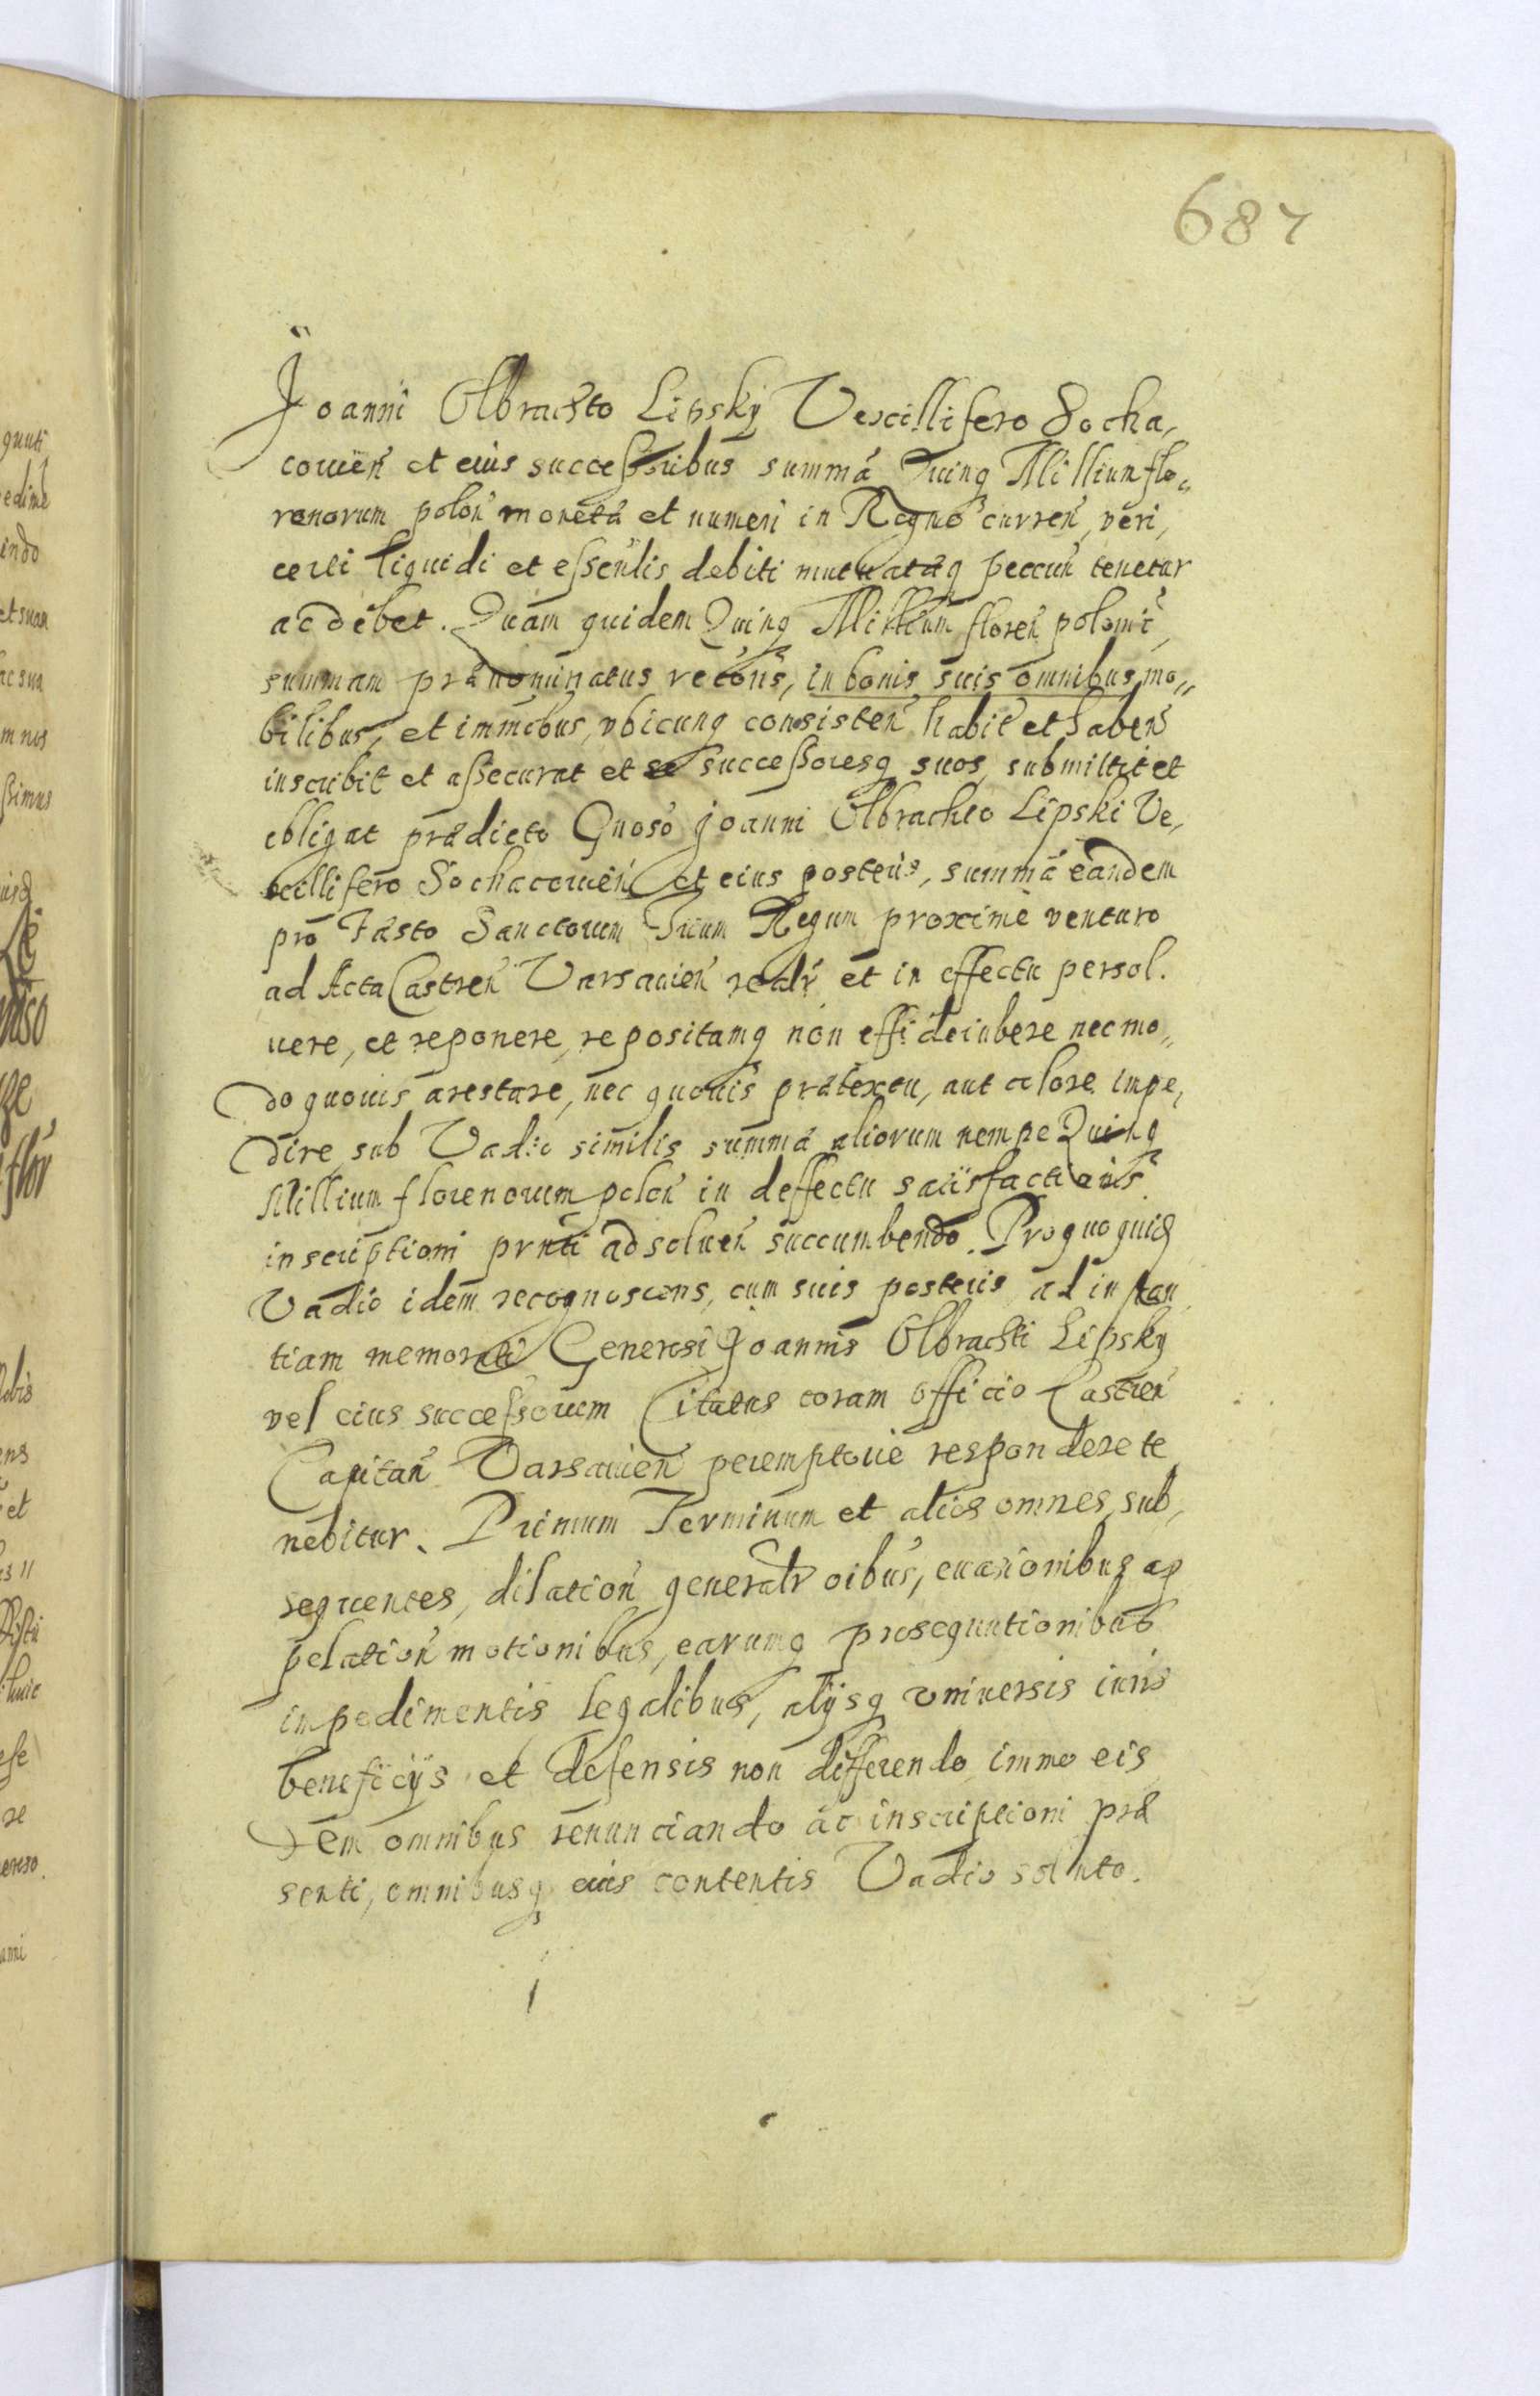 687
Joanni Olbrachto Lipsky Vexillifero Socha,
couień et eius successoribus summā Quinq Millium flo„
renorum poloń moneta et numeri in Regno curreń, veri,
certi liquidi et essenlis debiti mutuataq peccuń tenetur
ac debet. Quam quidem Quinq Millium floreń poloni
summam prænominatus recōns, in bonis suis omnibus mo„
bilibus, et immōbus, vbicunq consisteń habit et habeń
inscribit et assecurat et se successoresq suos, submittit et
obligat prædicto Gnoso Joanni Olbrachto Lipski Ve,
xillifero Sochacouień et eius posteris, summā eandem
pro Fæsto Sanctorum Trium Regum proximè venturo
ad Acta Castreń Varsauień realr et in effectu persol.
uere, et reponere, repositamq non effi deiubere nec mo„
do quouis arestare, nec quouis prætextu, aut calore impe,
dire sub Vadio similis summæ aliorum nempe Quinq
Millium florenorum poloń in deffectu satisfactionis
inscriptioni prnti adsolueń succumbendo. Pro quo quid
Vadio idem recognoscens, cum suis posteris ad instan
tiam memorati Generosi Joannis Olbrachti Lipsky
vel eius successorum Citatus coram officio Castreń
Capitań Varsauień peremptorie respondere te
nebitur. Primum Terminum et alios omnes, sub,
sequentes, dilatioń generalr oibus, euasionibus ap
pelatioń motionibus, earumq prosequutionibus
impedimentis legalibus, alijsq vniuersis iuris
beneficijs et defensis non differendo immo eis
dem omnibus renunciando ac inscriptioni præ
senti, omnibusq eius contentis Vadio soluto.